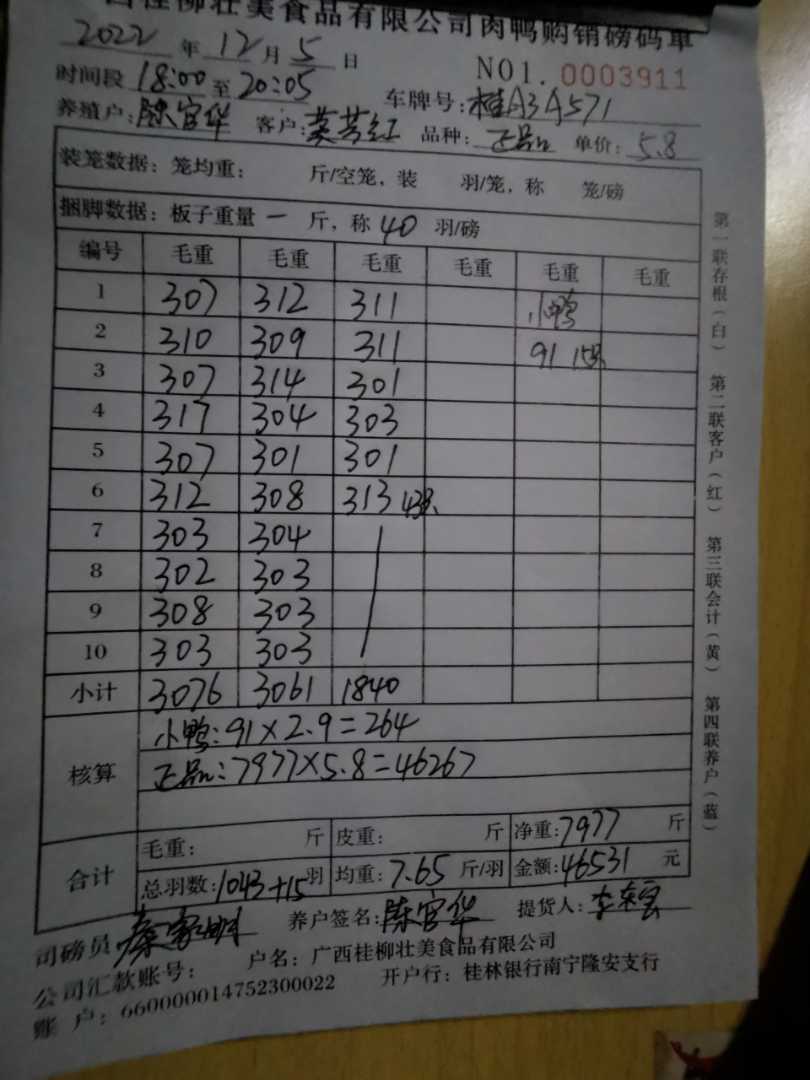 西桂柳壮美食品有限公司肉鸭购销磅码单
2022 年 12 月 5 日 NO1. 0003911
时间段 18:00 至 20:05 车牌号: 桂A3A571
养殖户: 陈官华 客户: 品种: 正品 单价: 5.8
装笼数据: 笼均重: 斤/空笼, 装 羽/笼, 称 笼/磅
捆脚数据: 板子重量 一 斤, 称 40 羽/磅
编号 毛重 毛重 毛重 毛重 毛重 毛重
1 307 312 311 小鸭
2 310 309 311 91 15只
3 307 314 301
4 317 304 303
5 307 301 301
6 312 308 313 43只
7 303 304
8 302 303
9 308 303
10 303 303
小计 3076 3061 1840
核算 小鸭: 91×2.9=264
正品: 7977×5.8=46267
合计 毛重: 斤 皮重: 斤 净重: 7977 斤
总羽数: 1043+15 羽 均重: 7.65 斤/羽 金额: 46531 元
司磅员 养户签名: 陈官华 提货人:
公司汇款账号: 户名: 广西桂柳壮美食品有限公司
账 户: 660000014752300022 开户行: 桂林银行南宁隆安支行
第一联存根(白) 第二联客户(红) 第三联会计(黄) 第四联养户(蓝)